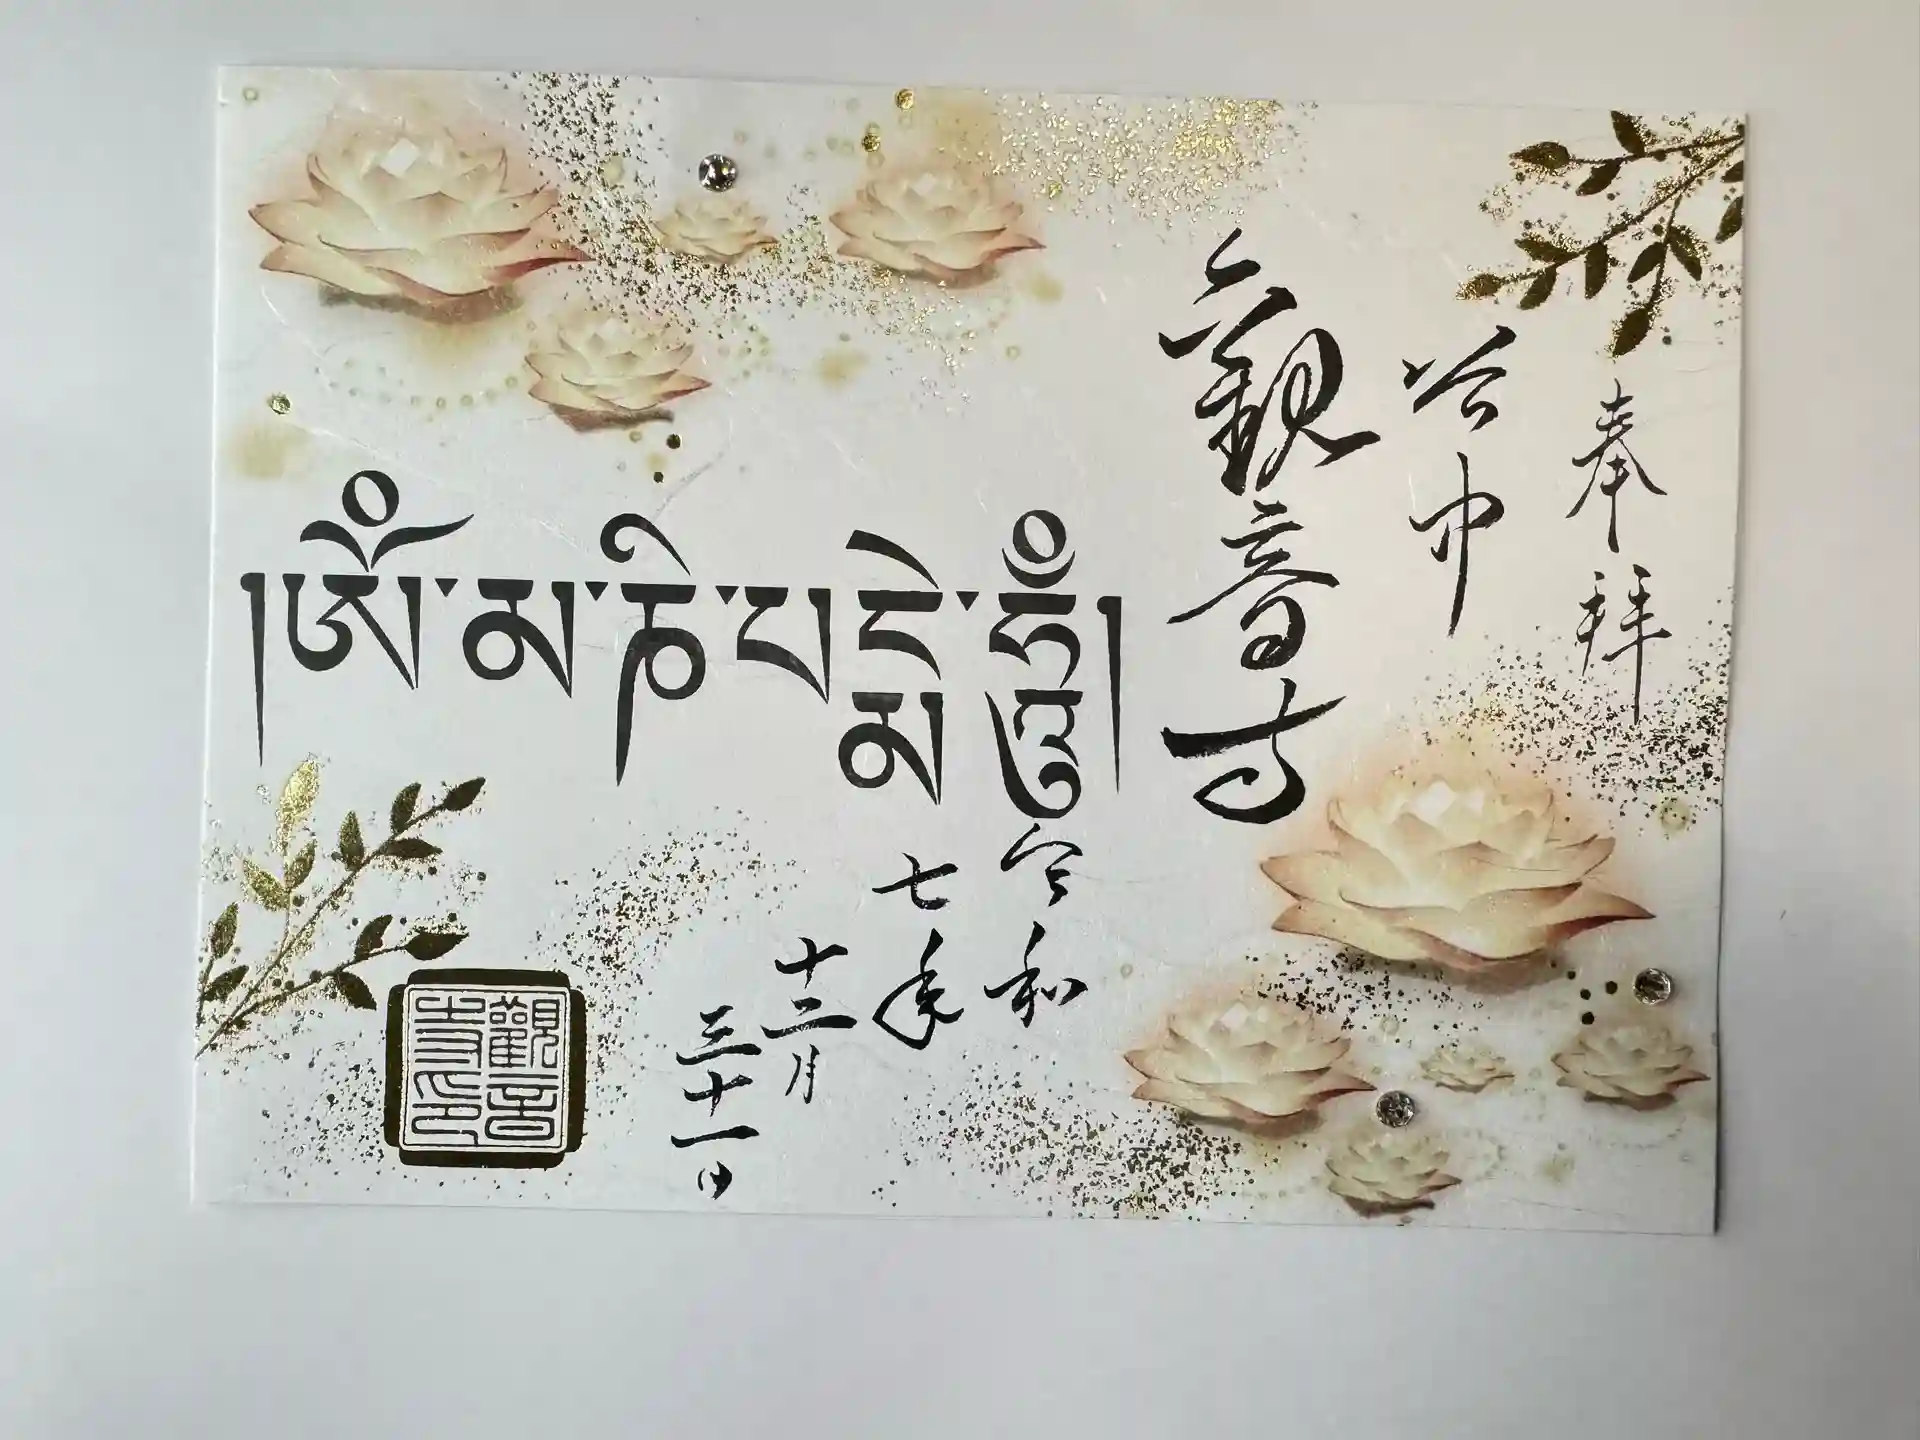 奉拝
谷中
観音寺
།ཨོཾ་མ་ཎི་པདྨེ་ཧཱུྃ།
令和
七年
十二月
三十一日
觀音
寺印